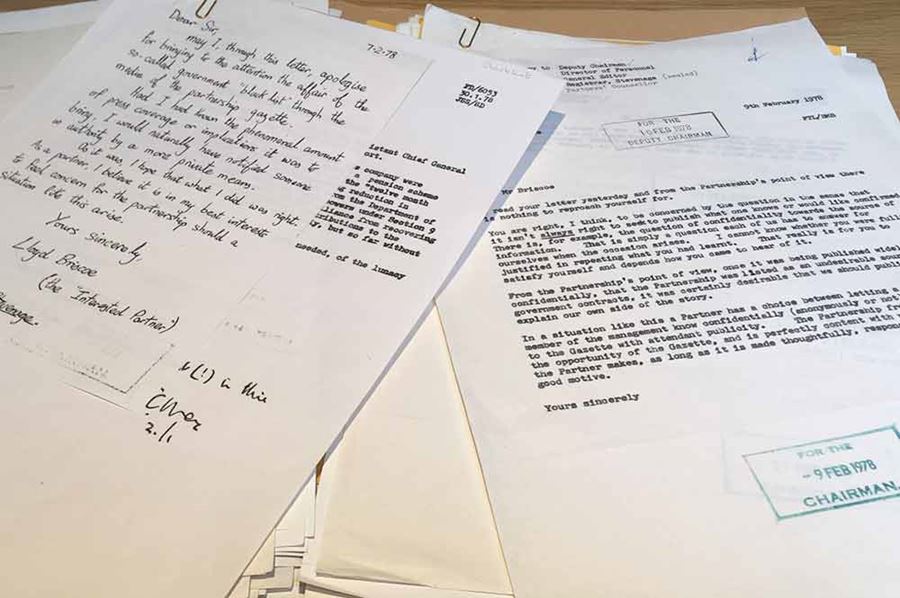 7-2-78
Dear Sir,
may I, through this letter, apologise
for bringing to the attention the affair of the
so-called government 'black list' through the
media of the partnership gazette.
Had I had known the phenomenal amount
of press coverage or implications it was to
bring, I would naturally have notified someone
in authority by a more private means.
As it was, I hope that what I did was right.
As a partner, I believe it is in my best interests
to feel concern for the partnership should a
situation like this arise.
Yours sincerely,
Lloyd Briscoe
(the 'Intrigued Partner')
Stevenage.
(!) in this
2./1
PD/6053
30.1.78
JES/HD
istant Chief General
ort.
a company were
a pension scheme
the "twelve month
reduction in
from the Department of
however under Section 9
from recovering
tributions to the
y, but so far without
needed, of the lunacy
to Deputy Chairman
Director of Personnel
General Editor
Registrar, Stevenage
Counsellor
9th February 1978
FOR THE
10 FEB 1978
DEPUTY CHAIRMAN
Mr Briscoe
read your letter yesterday and from the Partnership's point of view there
is nothing to reproach yourself for.
You are right, I think, to be concerned by the question in the sense that
it isn't always right to seek to publish what one knows or would like confirmed.
There is, for example, the question of confidentiality towards the source of
information. That is simply a question each of us has to answer for
ourselves when the occasion arises. I cannot know whether you were fully
justified in repeating what you had learnt. That really is for you to
satisfy yourself and depends how you came to hear of it.
From the Partnership's point of view, once it was being published widely
confidentially, that the Partnership was listed as an undesirable sou
government contracts, it was certainly desirable that we should publ
explain our own side of the story.
In a situation like this a Partner has a choice between letting a
member of the management know confidentially (anonymously or not
to the Gazette with attendant publicity. The Partnership
the opportunity of the Gazette, and is perfectly content with
the Partner makes, as long as it is made thoughtfully, respon
good motive.
Yours sincerely
FOR THE
- 9 FEB 1978
CHAIRMAN.